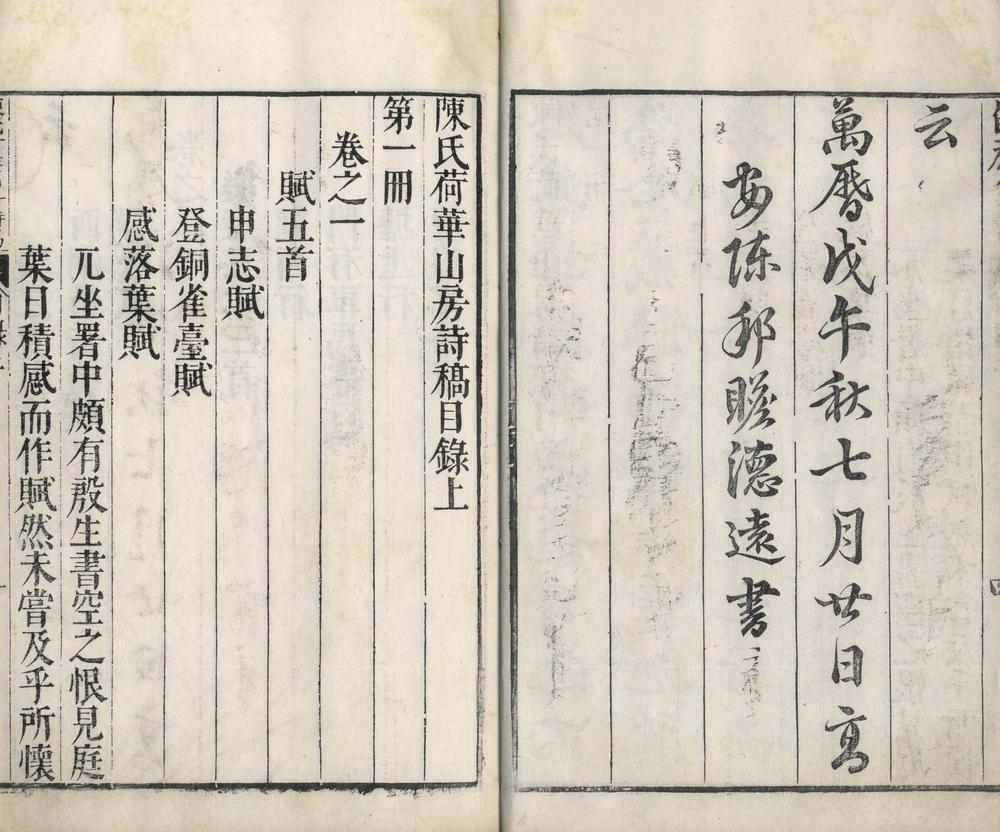 云
萬曆戊午秋七月廿日高
安陳邦瞻德遠書
陳氏荷華山房詩稿目錄上
第一冊
卷之一
賦五首
申志賦
登銅雀臺賦
感落葉賦
兀坐署中頗有殷生書空之恨見庭
葉日積感而作賦然未嘗及乎所懷